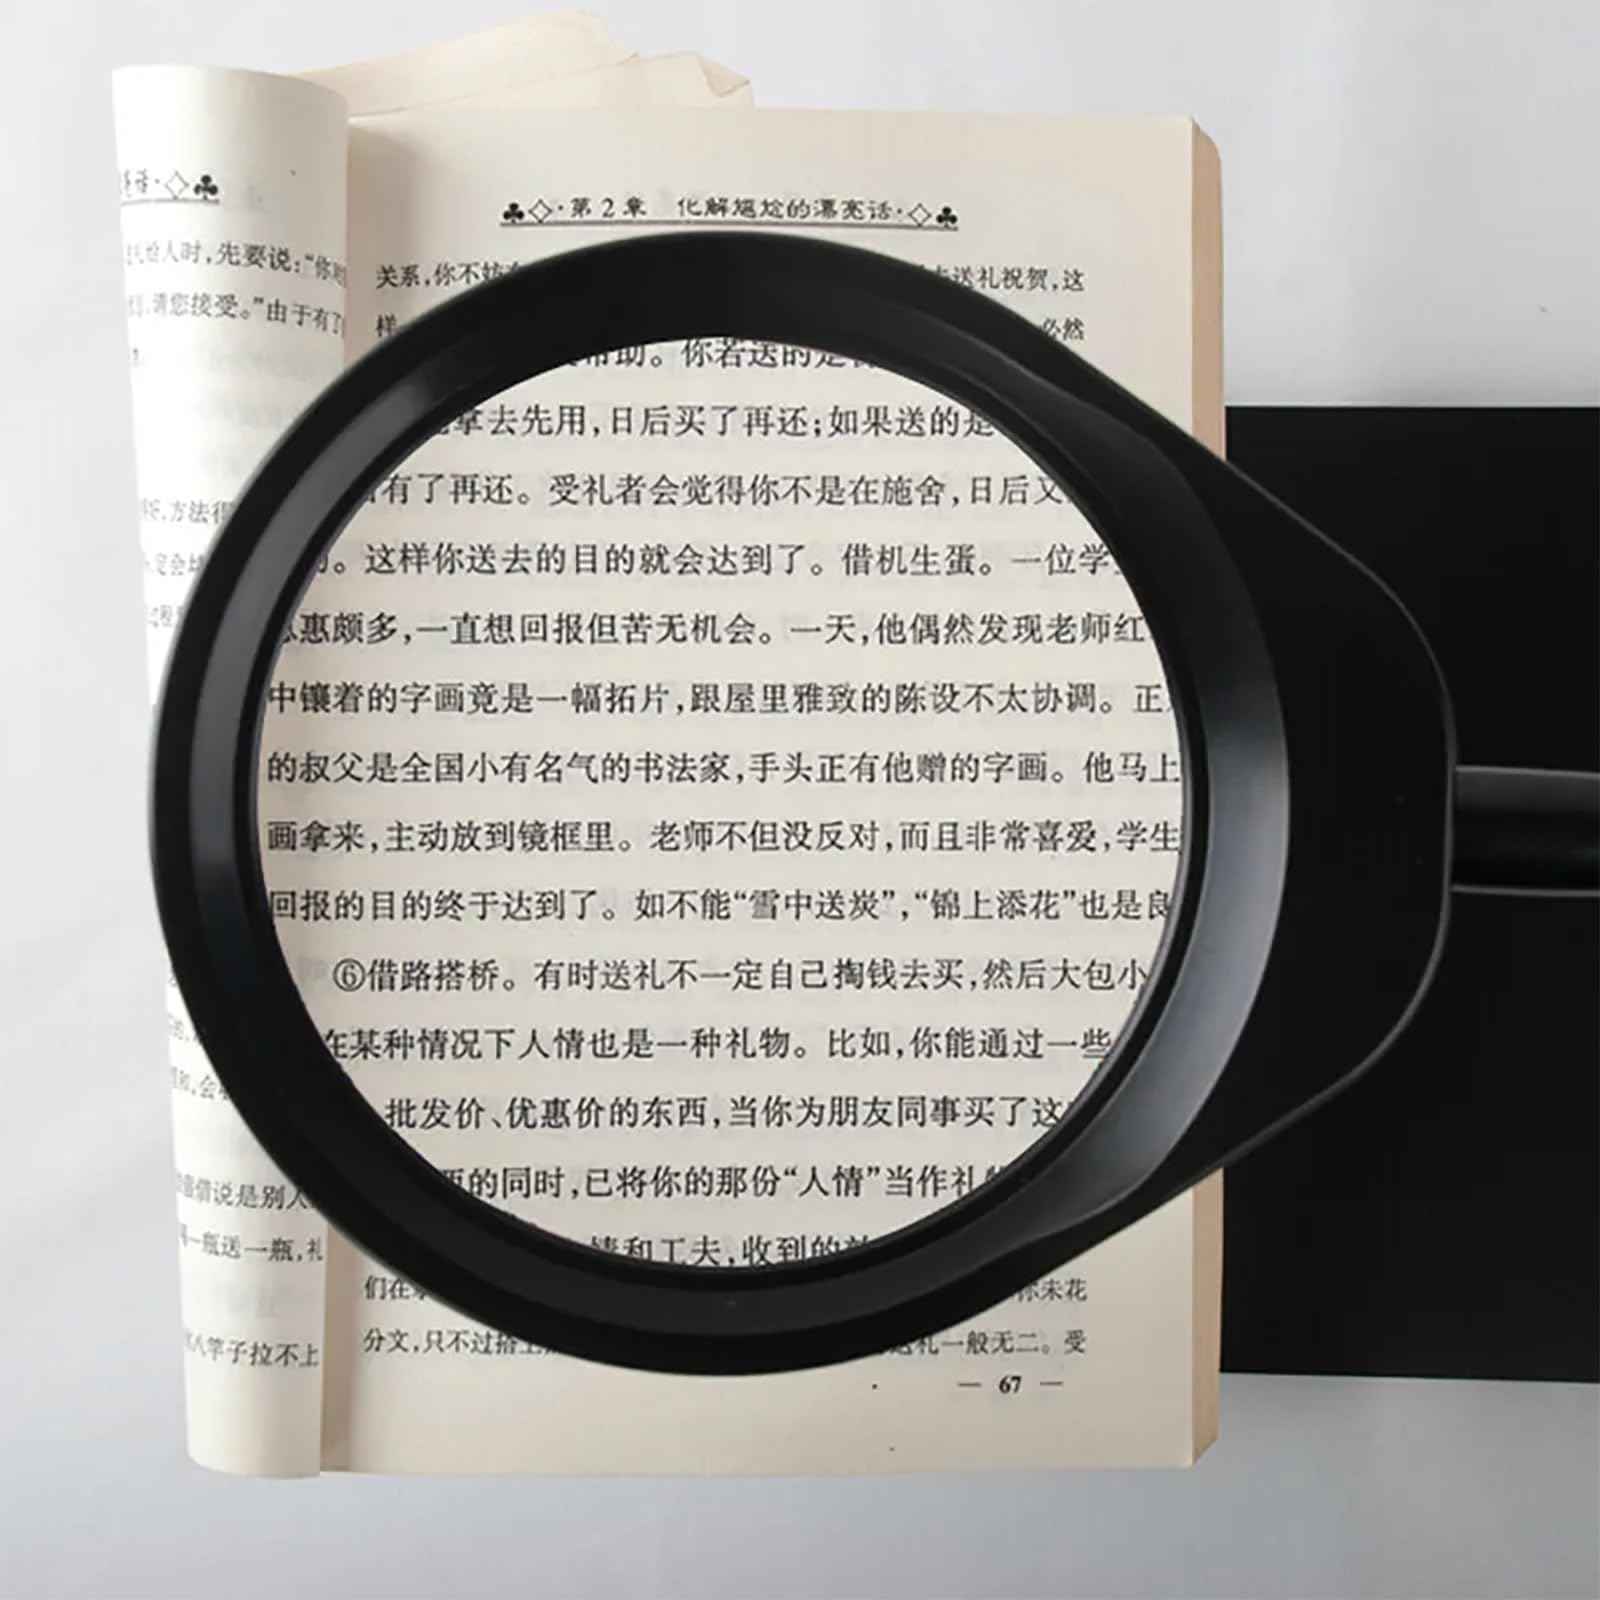 亮话·
第2章 化解尴尬的漂亮话·
人时,先要说:“你
请您接受。”由于有了
方法得
定会
过程
会
借说是别人
一瓶送一瓶,礼
八竿子拉不上
关系,你不妨 送礼祝贺,这
样 必然
帮助。你若送的是
拿去先用,日后买了再还;如果送的是
有了再还。受礼者会觉得你不是在施舍,日后又
。这样你送去的目的就会达到了。借机生蛋。一位学
惠颇多,一直想回报但苦无机会。一天,他偶然发现老师红
中镶着的字画竟是一幅拓片,跟屋里雅致的陈设不太协调。正
的叔父是全国小有名气的书法家,手头正有他赠的字画。他马上
画拿来,主动放到镜框里。老师不但没反对,而且非常喜爱,学生
回报的目的终于达到了。如不能“雪中送炭”,“锦上添花”也是良
⑥借路搭桥。有时送礼不一定自己掏钱去买,然后大包小
在某种情况下人情也是一种礼物。比如,你能通过一些
批发价、优惠价的东西,当你为朋友同事买了这
的同时,已将你的那份“人情”当作礼
情和工夫,收到的
们在 你未花
分文,只不过搭 送礼一般无二。受
— 67 —